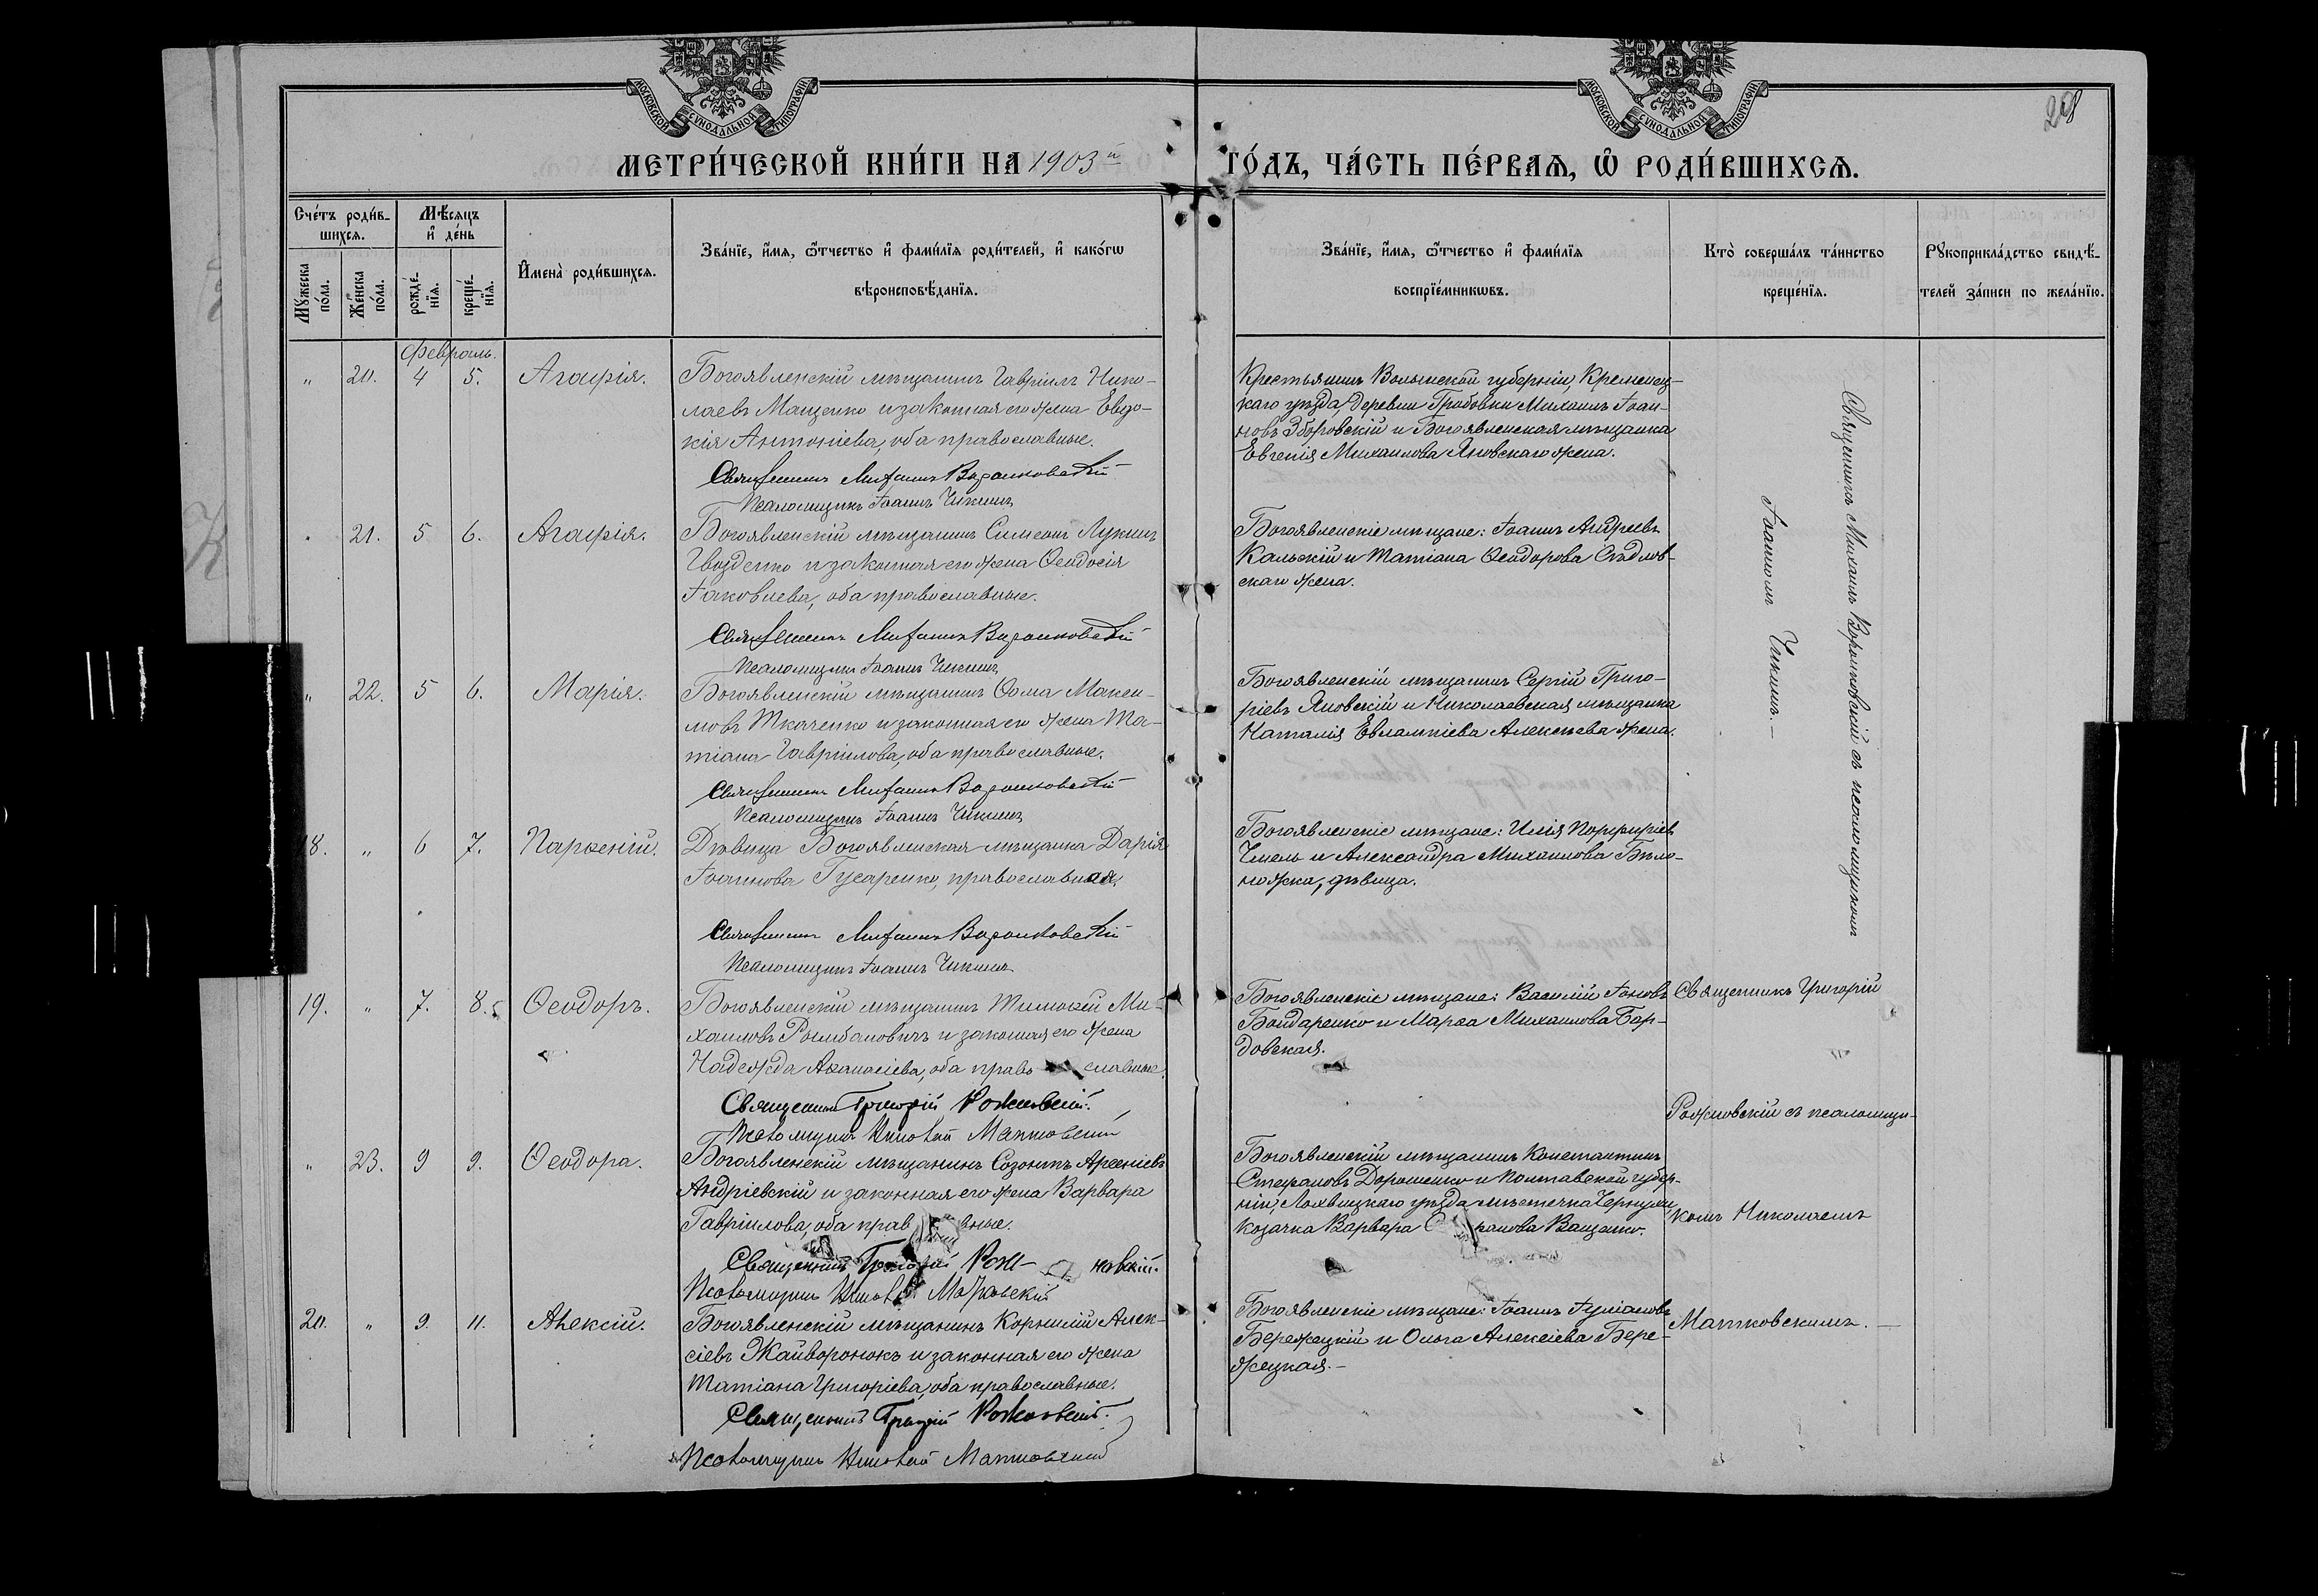 МОСКОВСКОЙ СѴНОДАЛЬНОЙ ТИПОГРАФІИ
МОСКОВСКОЙ СѴНОДАЛЬНОЙ ТИПОГРАФІИ
28
МЕТРИ́ЧЕСКОЙ КНИ́ГИ НА 1903й
ГО́ДЪ, ЧА́СТЬ ПЕ́РВАѦ, Ѽ РОДИ́ВШИХСѦ.
Сче́тъ роди́в-
шихсѧ.
Мꙋ́жеска по́ла.
Же́нска по́ла.
Мѣ́сѧцъ
и҆ де́нь
рожде́-
нїѧ.
креще́-
нїѧ.
И҆мена̀ роди́вшихсѧ.
Зва́нїе, и҆́мѧ, ѻ҆́тчество и҆ фами́лїѧ роди́телей, и҆ како́гѡ
вѣроисповѣ́данїѧ.
Зва́нїе, и҆́мѧ, ѻ҆́тчество и҆ фами́лїѧ
воспрїе́мникѡвъ.
Кто̀ соверша́лъ та́инство
креще́нїѧ.
Рꙋкоприкла́дство свидѣ́-
телей за́писи по жела́нїю.
Февраль.
" 20. 4 5. Агафія.
Богоявленскій мѣщанинъ Гавріилъ Нико-
лаевъ Мащенко и законная его жена Евдо-
кія Антоніева, оба православные.
Священникъ Михаилъ Воронковскій
Псаломщикъ Іоаннъ Чикинъ
Крестьянинъ Волынской губерніи, Кременец-
каго уѣзда, деревни Грабовки Михаилъ Іоан-
новъ Зборовскій и Богоявленская мѣщанка
Евгенія Михаилова Яновскаго жена.
Священникъ Михаилъ Воронковскій съ псаломщикомъ
Іоанномъ Чикинымъ.
" 21. 5 6. Агафія.
Богоявленскій мѣщанинъ Симеонъ Лукинъ
Гвозденко и законная его жена Ѳеодосія
Іаковлева, оба православные.
Священникъ Михаилъ Воронковскій
Псаломщикъ Іоаннъ Чикинъ
Богоявленскіе мѣщане: Іоаннъ Андреевъ
Кальскій и Татіана Ѳеодорова Сѣдлов-
скаго жена.
" 22. 5 6. Марія.
Богоявленскій мѣщанинъ Ѳома Макси-
мовъ Ткаченко и законная его жена Та-
тіана Гавріилова, оба православные.
Священникъ Михаилъ Воронковскій
Псаломщикъ Іоаннъ Чикинъ
Богоявленскій мѣщанинъ Сергій Григо-
ріевъ Яновскій и Николаевская мѣщанка
Наталія Евлампіева Алексѣева жена.
18. " 6 7. Парѳеній.
Дѣвица Богоявленская мѣщанка Дарія
Іоаннова Гусаренко, православная.
Священникъ Михаилъ Воронковскій
Псаломщикъ Іоаннъ Чикинъ
Богоявленскіе мѣщане: Илія Порфиріевъ
Чмель и Александра Михаилова Бѣло-
ножка, дѣвица.
19. " 7. 8. Ѳеодоръ.
Богоявленскій мѣщанинъ Тимоѳей Ми-
хаиловъ Рымбановичъ и законная его жена
Надежда Аѳанасіева, оба право славные.
Священникъ Григорій Рожновскій.
Псаломщикъ Николай Матковскій
Богоявленскіе мѣщане: Василій Іоновъ
Бондаренко и Марѳа Михаилова Бар-
довская.
Священникъ Григорій
Рожновскій съ псаломщи-
комъ Николаемъ
Матковскимъ.
" 23. 9 9. Ѳеодора.
Богоявленскій мѣщанинъ Созонтъ Арсеніевъ
Андріевскій и законная его жена Варвара
Гавріилова, оба прав вные.
Священникъ Григорій Рож- новскій.
Псаломщикъ Николай Матковскій
Богоявленскій мѣщанинъ Константинъ
Стефановъ Дорошенко и Полтавской губер-
ніи, Лохвицкаго уѣзда мѣстечка Чернухи,
козачка Варвара С панова Ващенко.
20. " 9. 11. Алексій.
Богоявленскій мѣщанинъ Корнилій Алек-
сіевъ Жайворонокъ и законная его жена
Татіана Григоріева, оба православные.
Священникъ Григорій Рожновскій.
Псаломщикъ Николай Матковскій
Богоявленскіе мѣщане: Іоаннъ Іуліановъ
Бережецкій и Ольга Алексіева Бере-
жецкая.